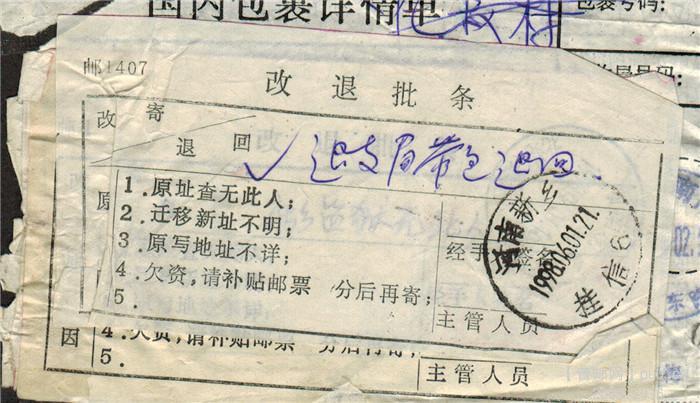 国内包裹详情单
包裹号码:
邮1407
改退批条
改寄
退回
退支局带包退回.
原
1.原址查无此人;
2.迁移新址不明;
3.原写地址不详;
4.欠资,请补贴邮票 分后再寄;
5.
经手
签名
主管人员
河南新乡
1998.06.01.21
因
4.欠资,请补贴邮票 分后再寄;
5.
主管人员